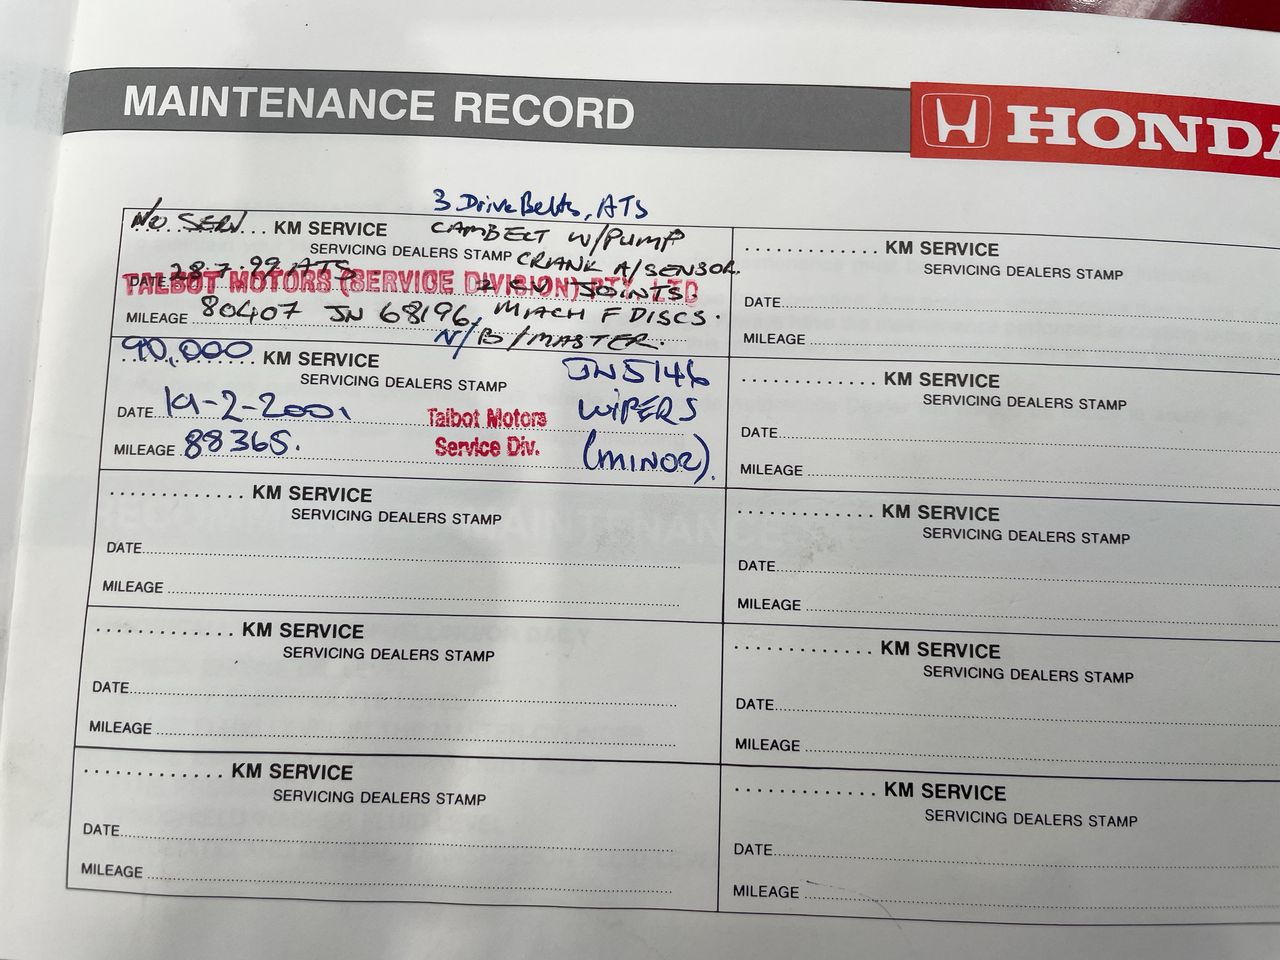 MAINTENANCE RECORD
HONDA
3 Drive Belts, ATS
NO SERV... KM SERVICE CAMBELT W/PUMP
SERVICING DEALERS STAMP CRANK A/SENSOR.
DATE 28.7.99 ATS
TALBOT MOTORS (SERVICE DIVISION) PTY. LTD
2 CV JOINTS.
MILEAGE 80407 JN 68196, MACH F DISCS.
N/B/MASTER.
90,000 KM SERVICE JN 5146
SERVICING DEALERS STAMP
DATE 19-2-2001 Talbot Motors WIPERS
MILEAGE 88365. Service Div. (MINOR).
............. KM SERVICE
SERVICING DEALERS STAMP
DATE
MILEAGE
............. KM SERVICE
SERVICING DEALERS STAMP
DATE
MILEAGE
............. KM SERVICE
SERVICING DEALERS STAMP
DATE
MILEAGE
............. KM SERVICE
SERVICING DEALERS STAMP
DATE
MILEAGE
............. KM SERVICE
SERVICING DEALERS STAMP
DATE
MILEAGE
............. KM SERVICE
SERVICING DEALERS STAMP
DATE
MILEAGE
............. KM SERVICE
SERVICING DEALERS STAMP
DATE
MILEAGE
............. KM SERVICE
SERVICING DEALERS STAMP
DATE
MILEAGE